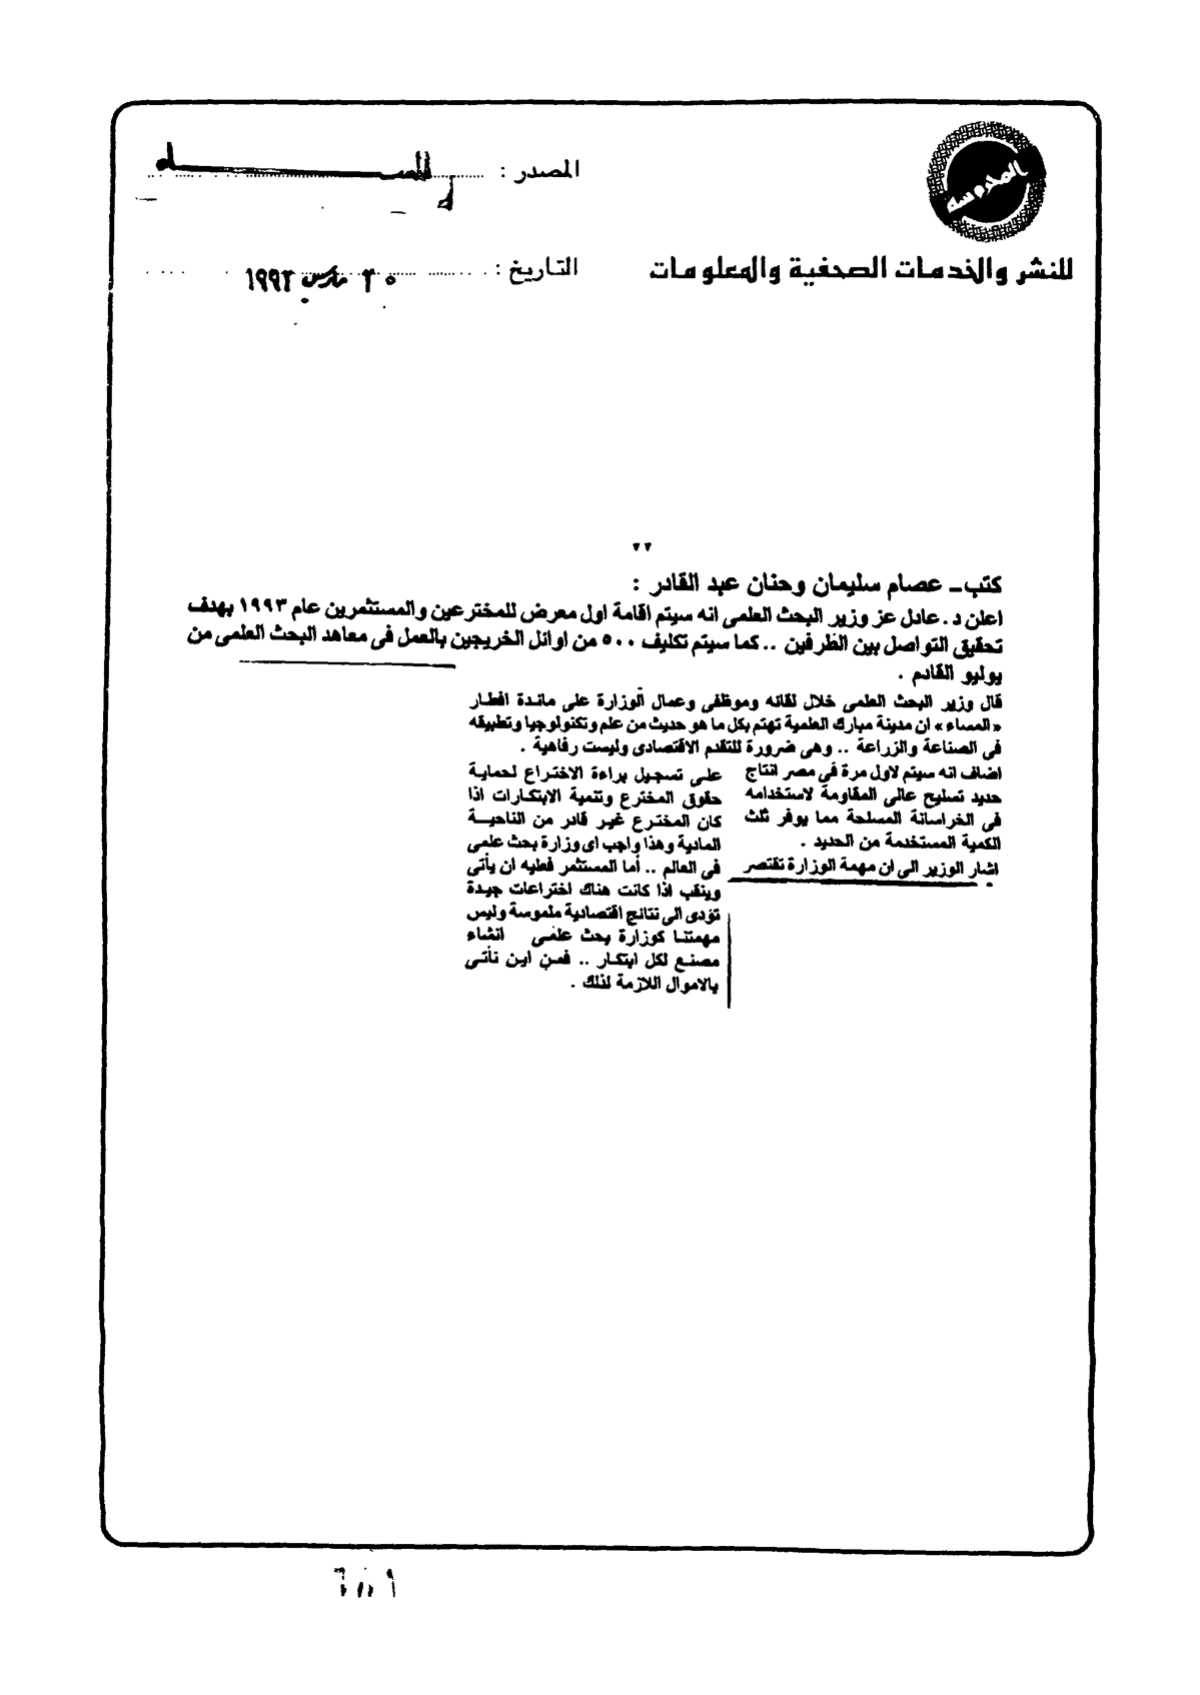 المدوسه
للنشر والخدمات الصحفية والمعلومات
المصدر :
التاريخ : مارس ١٩٩٢
كتب ـ عصام سليمان وحنان عبد القادر :
اعلن د . عادل عز وزير البحث العلمى انه سيتم اقامة اول معرض للمخترعين والمستثمرين عام ١٩٩٣ بهدف
تحقيق التواصل بين الطرفين .. كما سيتم تكليف ٥٠٠ من اوائل الخريجين بالعمل فى معاهد البحث العلمى من
يوليو القادم .
قال وزير البحث العلمى خلال لقائه وموظفى وعمال الوزارة على مائدة افطار
« المساء » ان مدينة مبارك العلمية تهتم بكل ما هو حديث من علم وتكنولوجيا وتطبيقه
فى الصناعة والزراعة .. وهى ضرورة للتقدم الاقتصادى وليست رفاهية .
اضاف انه سيتم لاول مرة فى مصر انتاج
حديد تسليح عالى المقاومة لاستخدامه
فى الخراسانة المسلحة مما يوفر ثلث
الكمية المستخدمة من الحديد .
اشار الوزير الى ان مهمة الوزارة تقتصر
على تسجيل براءة الاختراع لحماية
حقوق المخترع وتنمية الابتكارات اذا
كان المخترع غير قادر من الناحيــة
المادية وهذا واجب اى وزارة بحث علمى
فى العالم .. أما المستثمر فعليه ان يأتى
وينقب اذا كانت هناك اختراعات جيدة
تؤدى الى نتائج اقتصادية ملموسة وليس
مهمتنا كوزارة بحث علمى انشاء
مصنع لكل ابتكار .. فمن اين نأتى
بالاموال اللازمة لذلك .